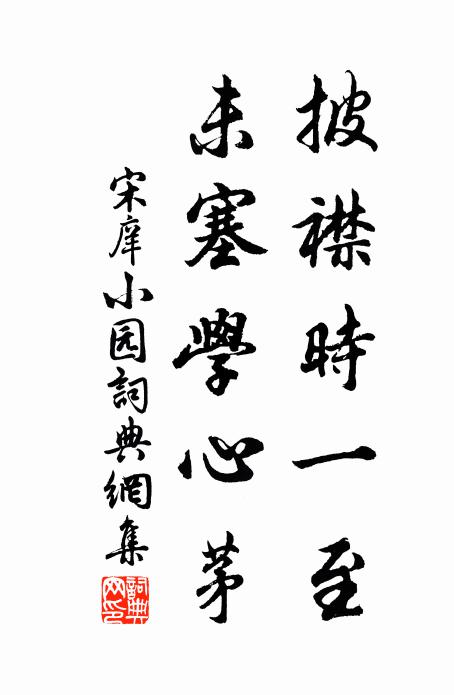 披襟時一至
未塞學心茅
宋庠小园詞典網集
詞典网印